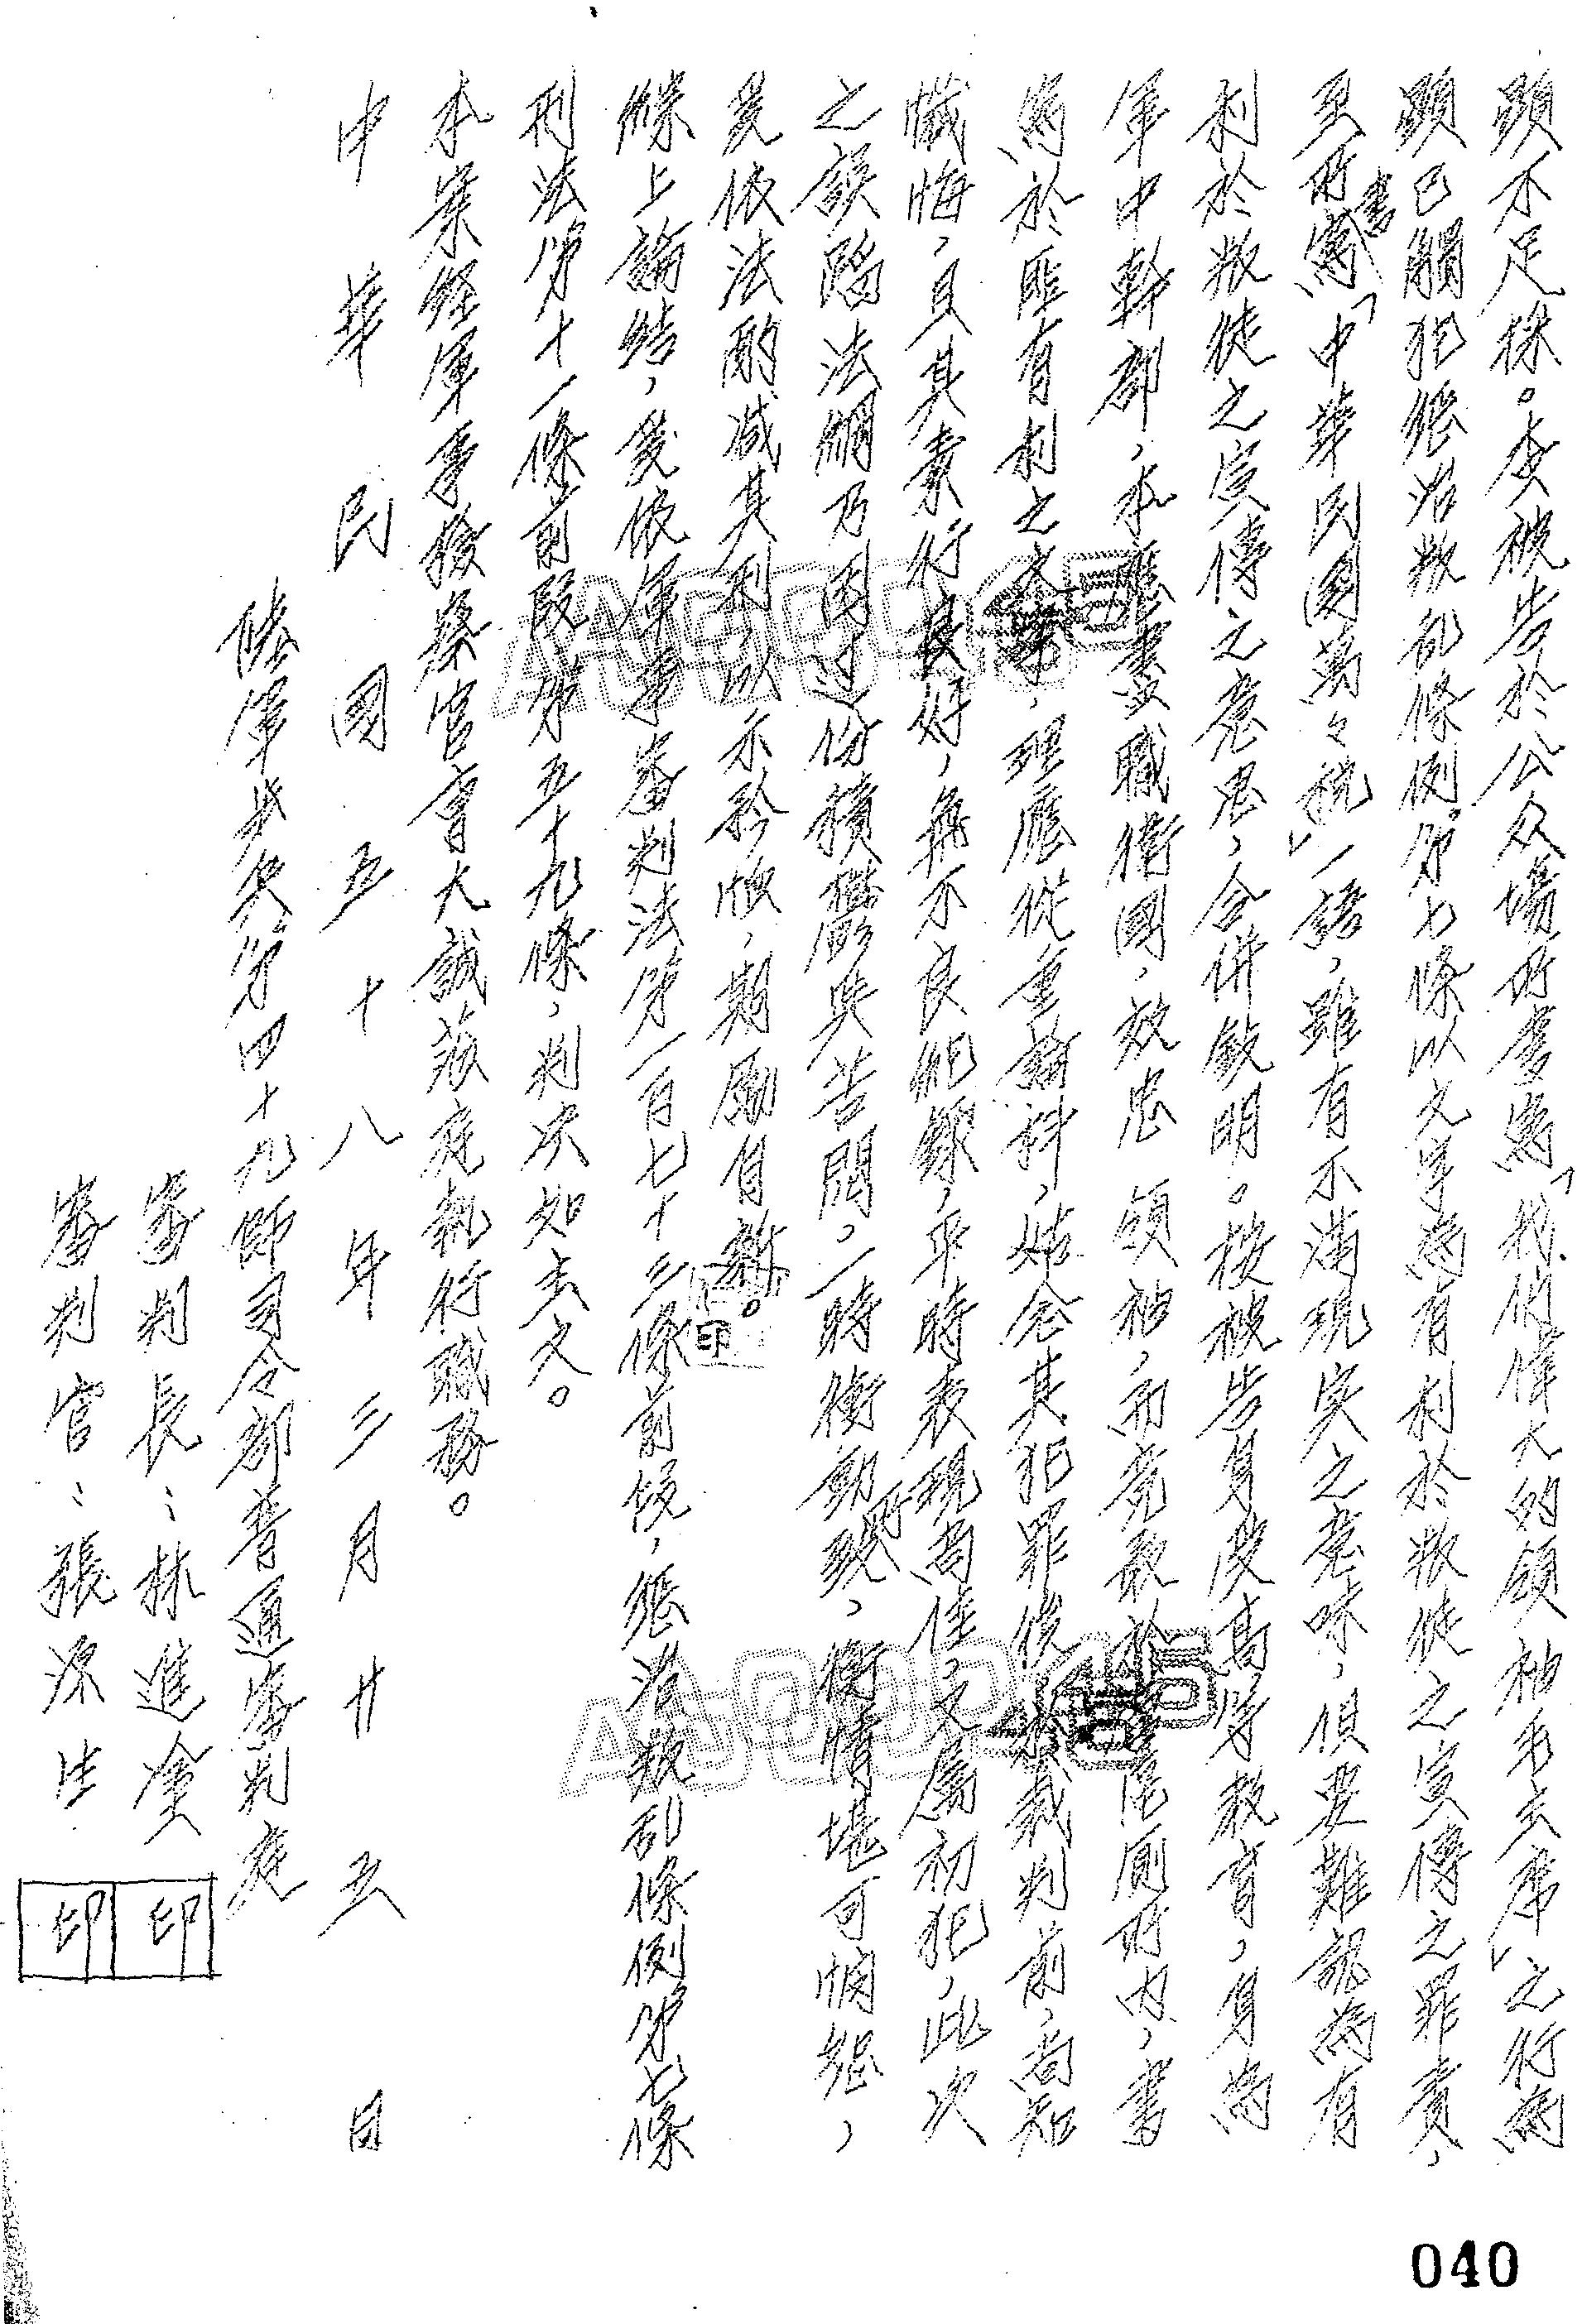 顯不足採。查被告於公众場所書寫「我們偉大的領袖毛主席」之行為
顯已觸犯懲治叛亂條例第七條以文字為有利於叛徒之宣傳之罪責，
至所書寫「中華民國萬々稅」一語，雖有不滿現实之意味，但要難認為有
利於叛徒之宣傳之意思，合併敘明。按被告身受高等教育，身為
軍中幹部，本應盡其職衛國，效忠 領袖，而竟敢於營區厠所內，書
寫於匪有利之文字，理應從重論科，姑念其犯罪後於裁判前，尚知
懺悔，且其素行良好，無不良紀錄，平時表現尚佳，又屬初犯，此次
之誤蹈法網乃因過份積鬱與苦悶，一時衝動所致，衡情堪可憫恕，
爰依法酌减其刑以示矜恤，期勵自新。
印
條上論結，爰依軍事審判法第一百七十三條前段，懲治叛乱條例第七條
刑法第十一條前段第五十九條，判决如主文。
本案經軍事檢察官曹大誠蒞庭執行職務。
中華民國五十八年三月廿五日
陸軍步兵第四十九師司令部普通審判庭
審判長：林進塗 印
審判官：張添生 印
040